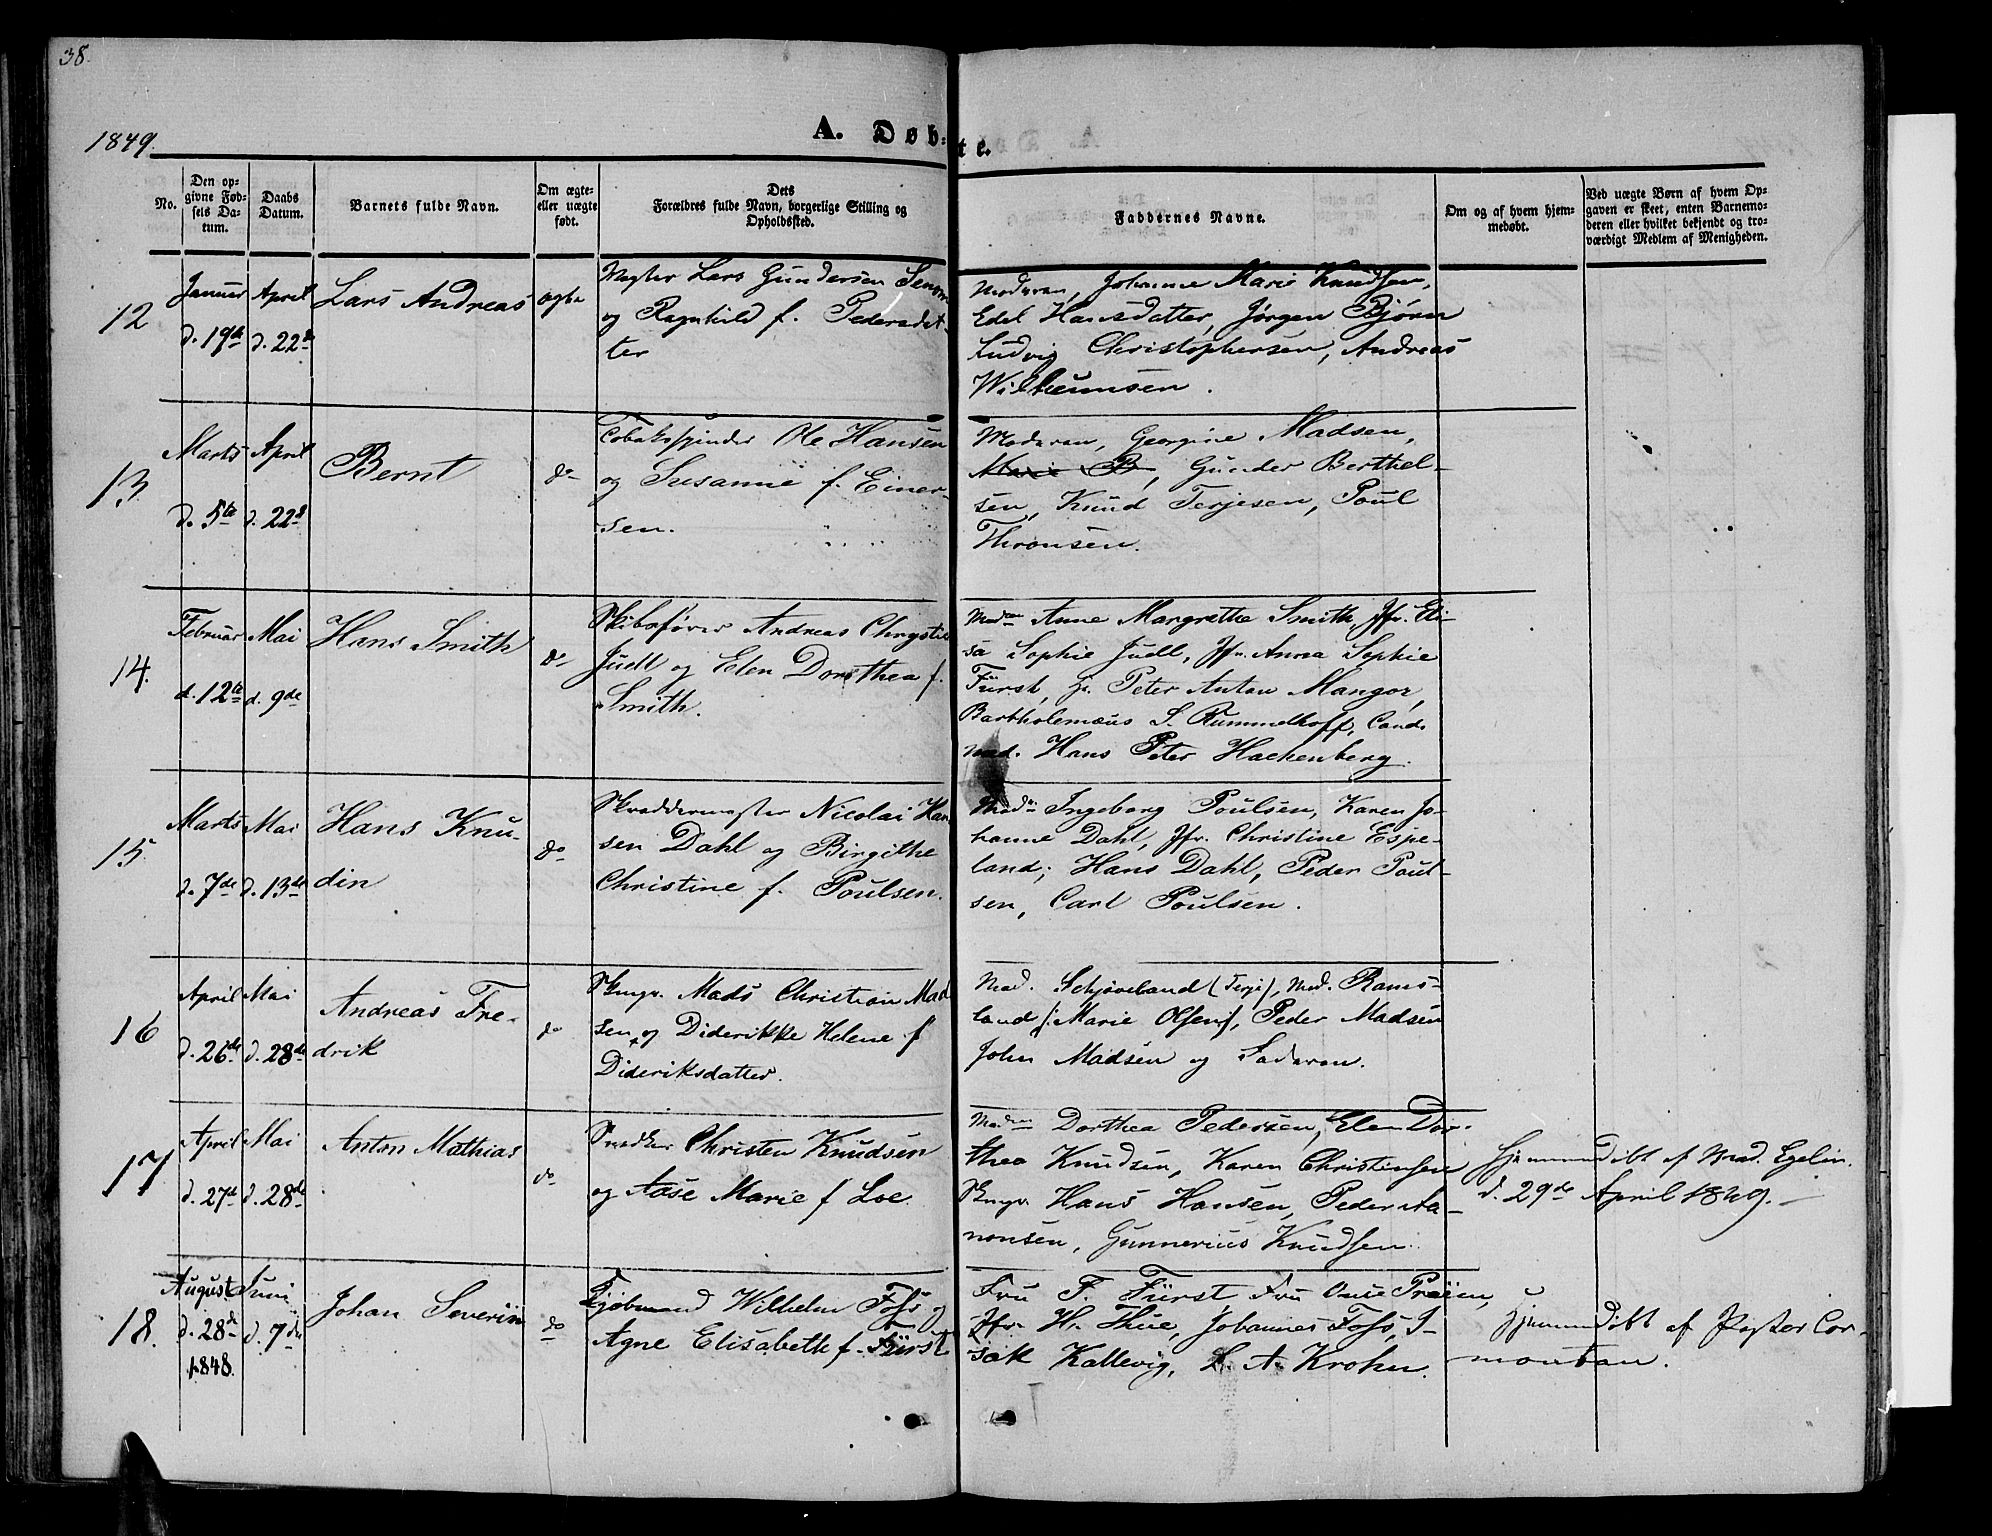 38.
1849.
A. Døbte.
No.
Den opgivne Fødsels Datum.
Daabs Datum.
Barnets fulde Navn.
Om ægte- eller uægte født.
Dets Forældres fulde Navn, borgerlige Stilling og Opholdssted.
Faddernes Navne.
Om og af hvem hjemmedøbt.
Ved uægte Børn af hvem Opgaven er skeet, enten Barnemoderen eller hvilket bekjendt og troværdigt Medlem af Menigheden.
12
Januar d. 19de
April d. 22de
Lars Andreas
ægte
Lars Gundersen
og Ragnhild f. Pedersdat
ter
Moderen, Johanne Marie Knudsen,
Edel Hansdatter, Jørgen Bjørn
Ludvig Christophersen, Andreas
Wilhelmsen.
13
Marts d. 5te
April d. 22d
Bernt
do
Tobaksspinder Ole Hansen
og Susanne f. Einer-
sen.
Moderen, Georgine Madsen,
Marie B, Gunder Berthel-
sen, Knud Terjesen, Poul
Thronsen.
14.
Februar d. 12te
Mai d. 9de
Hans Smith
do
Skibsfører Andreas
Juell og Elen Dorothea f.
Smith.
Mad. Anne Margrethe Smith, Jfr. Eli-
sa Sophie Juell, Jfr. Anna Sophie
Fürst, Peter Anton Mangor,
Bartholemæus S. Rummelhoff, Cand.
med. Hans Peter Hackenberg.
15.
Marts d. 7de
Mai d. 13de
Hans Knu-
din
do
Skræddermester Nicolai Han
sen Dahl og Birgithe
Christine f. Poulsen.
Mad. Ingeborg Poulsen, Karen Jo-
hanne Dahl, Jfr. Christine Espe-
land; Hans Dahl, Peder Poul-
sen, Carl Poulsen.
16
April d. 26de
Mai d. 28de
Andreas Fre-
drik
do
Skmgr. Mads Christian Mad
sen og Diderikke Helene f
Dideriksdatter.
Mad. Schjøveland (Terje), Mad. Rams-
land /: Marie Olsen/, Peder Madsen
John Madsen og Faderen.
17
April d. 27d
Mai d. 28de
Anton Mathias
do
Snedker Christen Knudsen
og Aase Marie f Loe
Mad. Dorthea Pedersen, Elen Dor-
thea Knudsen, Karen Christensen
Skmgr. Hans Hansen, Peder Aa-
nonsen, Gunnerius Knudsen.
Hjemmedøbt af Mad. Egelin.
d. 29de April 1849.
18.
August d. 28de 1848.
Juni d. 7de
Johan Severin
do
Kjøbmand Wilhelm Foss og
Agne Elisabeth f. Fürst
Fru F. Fürst Fru
Jfr. H. Thue, Johannes Foss, I-
sak Kallevig, L. A. Krohn.
Hjemmedøbt af Pastor Cor-
montan.